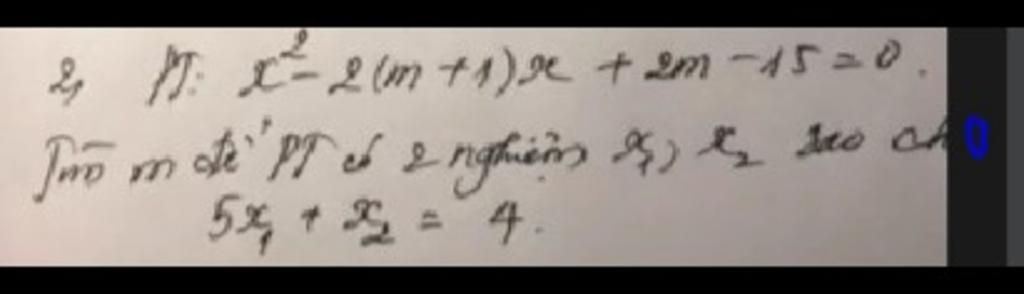 2, PT: x² - 2(m+1)x + 2m - 15 = 0.
Tìm m để PT có 2 nghiệm x₁, x₂ sao cho
5x₁ + x₂ = 4.